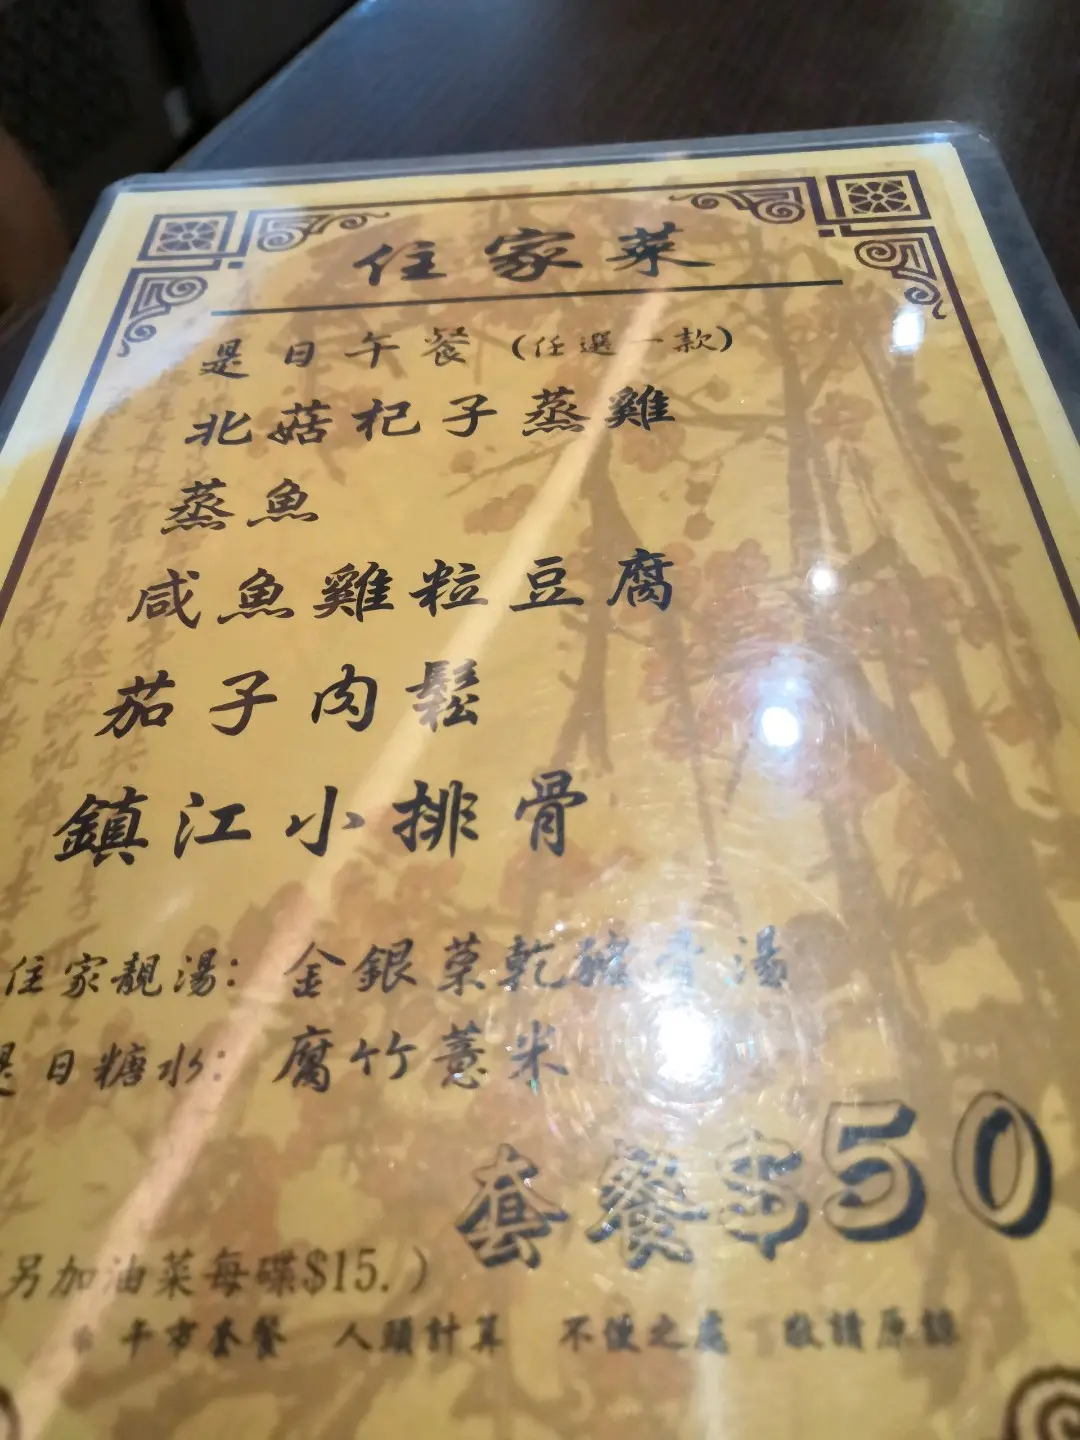 住家菜
是日午餐（任選一款）
北菇杞子蒸雞
蒸魚
咸魚雞粒豆腐
茄子肉鬆
鎮江小排骨
住家靚湯：金銀菜乾豬骨湯
是日糖水：腐竹薏米
套餐$50
（另加油菜每碟$15.）
* 午市套餐 人頭計算 不便之處 敬請原諒